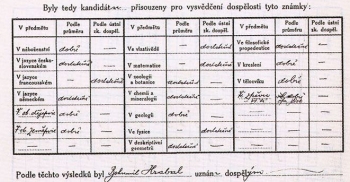 Byly tedy kandidátu přisouzeny pro vysvědčení dospělosti tyto známky:
V předmětu Podle průměru Podle ústní zk. dospěl. V předmětu Podle průměru Podle ústní zk. dospěl. V předmětu Podle průměru Podle ústní zk. dospěl.
V náboženství dobrý — Ve vlastivědě — dostatečný Ve filosofické propedeutice dostatečný —
V jazyce česko-slovenském dostatečný V matematice dostatečný V kreslení dobrý
V jazyce francouzském — dostatečný V zoologii a botanice dostatečný V tělocviku dobrý —
V jazyce německém dostatečný V chemii a mineralogii dostatečný Ve zpěvu
V ob. dějepise dobrý V geologii dobrý —
V ob. zeměpise dobrý Ve fysice — dostatečný
V deskriptivní geometrii dostatečný
Podle těchto výsledků byl Bohumil Hrabal uznán dospělým